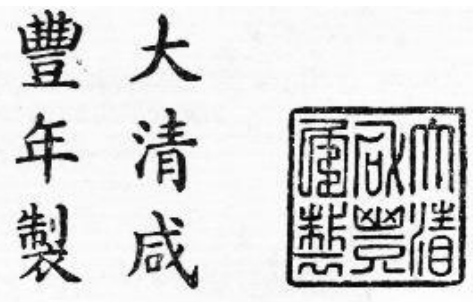 大清咸
豐年製
大清
咸豐
年製